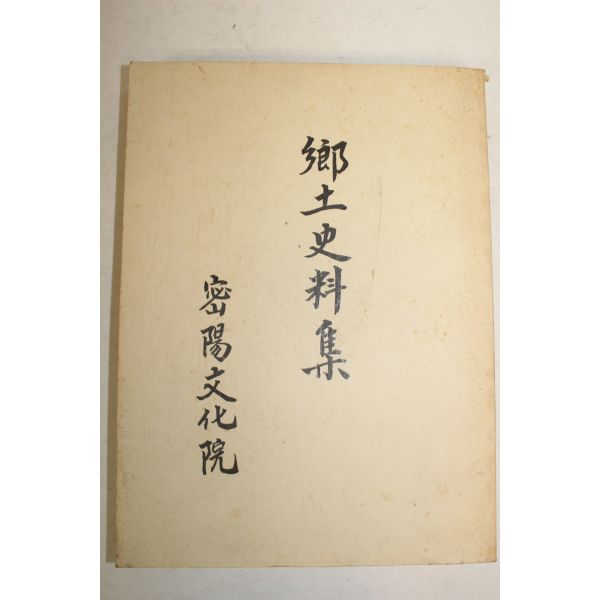 鄕土史料集
密陽文化院